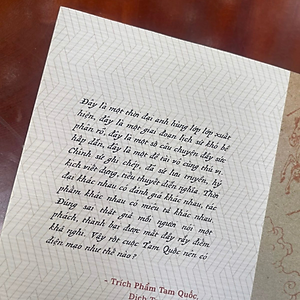 Đây là một thời đại anh hùng lớp lớp xuất
hiện, đây là một giai đoạn lịch sử khó bề
phân rõ, đây là một số câu chuyện đầy sức
hấp dẫn, đây là một đề tài vô cùng thú vị.
Chính sử ghi chép, dã sử lưu truyền, hý
kịch viết dựng, tiểu thuyết diễn nghĩa. Thời
đại khác nhau có đánh giá khác nhau, tác
phẩm khác nhau có miêu tả khác nhau.
Đúng sai thật giả mỗi người nói một
phách, thành bại được mất đầy rẫy điểm
khả nghi. Vậy rốt cuộc Tam Quốc nên có
diện mạo như thế nào?
- Trích Phẩm Tam Quốc,
Dịch T